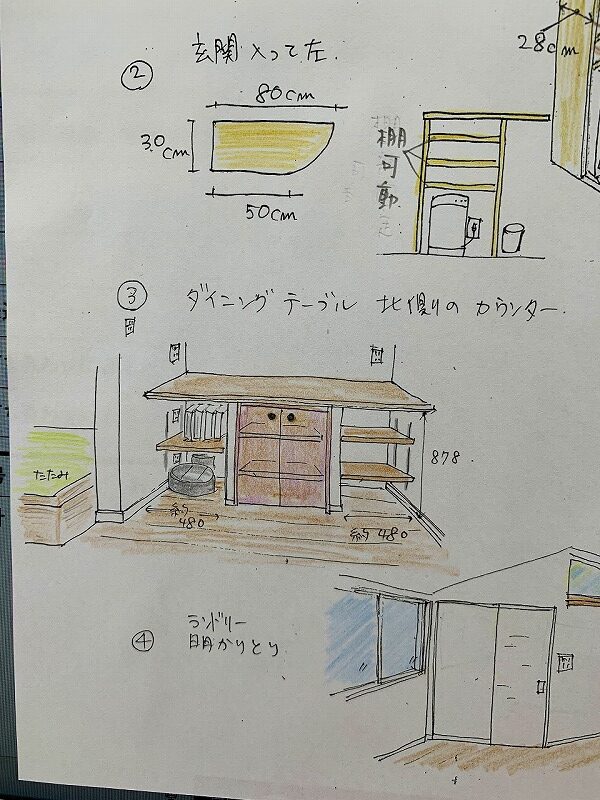 28cm
② 玄関入って左.
80cm
30
cm
50cm
棚
可
動
③ ダイニングテーブル 北側りの カウンター.
たたみ
878
約
480
約480
④ ランドリー
明かりとり